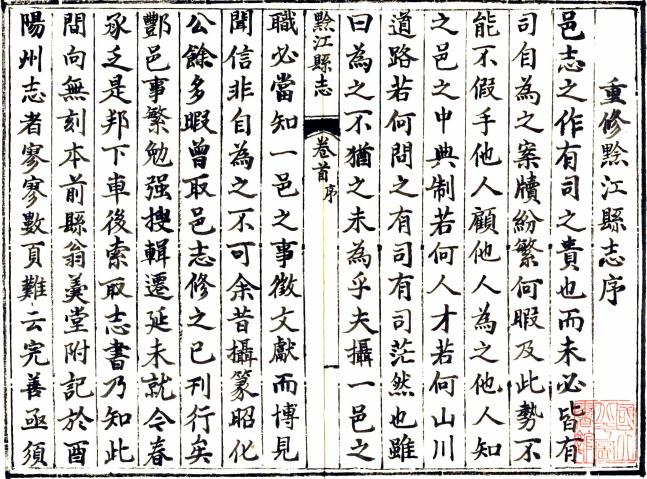 重修黔江縣志序
邑志之作有司之責也而未必皆有
司自為之案牘紛繁何暇及此勢不
能不假手他人顧他人為之他人知
之邑之中典制若何人才若何山川
道路若何問之有司有司茫然也雖
曰為之不猶之未為乎夫攝一邑之
黔江縣志 卷首 序 一
職必當知一邑之事徵文獻而博見
聞信非自為之不可余昔攝篆昭化
公餘多暇曾取邑志修之已刊行矣
酆邑事繁勉强搜輯遷延未就今春
承乏是邦下車後索取志書乃知此
間向無刻本前縣翁羹堂附記於酉
陽州志者寥寥數頁難云完善亟須